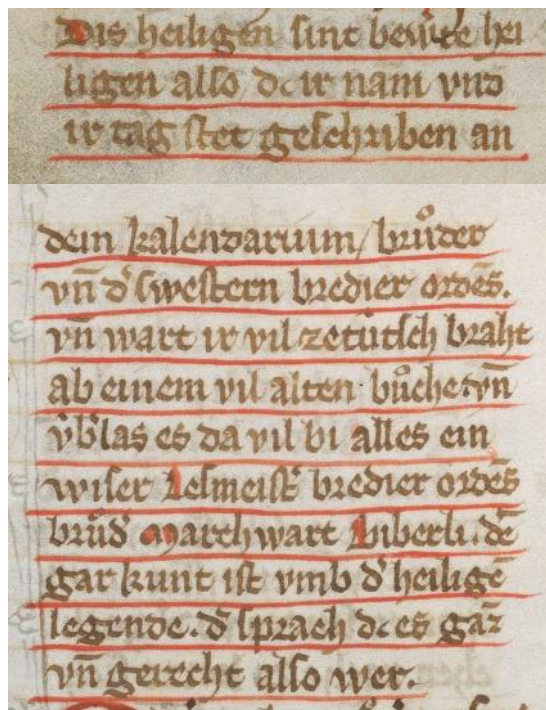 Dis heiligen sint bewꝛte hei
ligen also dc ir nam vnd
ir tag stet geschriben an
dem kalendarium / bruͦder
vn̄ d̾ swestern bredier ordēs.
vn̄ wart ir vil ze tútsch braht
ab einem vil alten bůche. vn̄
vb̾las es da vil bi alles ein
wiser Lesmeist̾ bredier ordēs
bruͦd̾ Marchwart Biberli. dē
gar kunt ist vmb d̾ heiligē
legende. d̾ sprach dc es gaꝛ̄
vn̄ gerecht also wer.